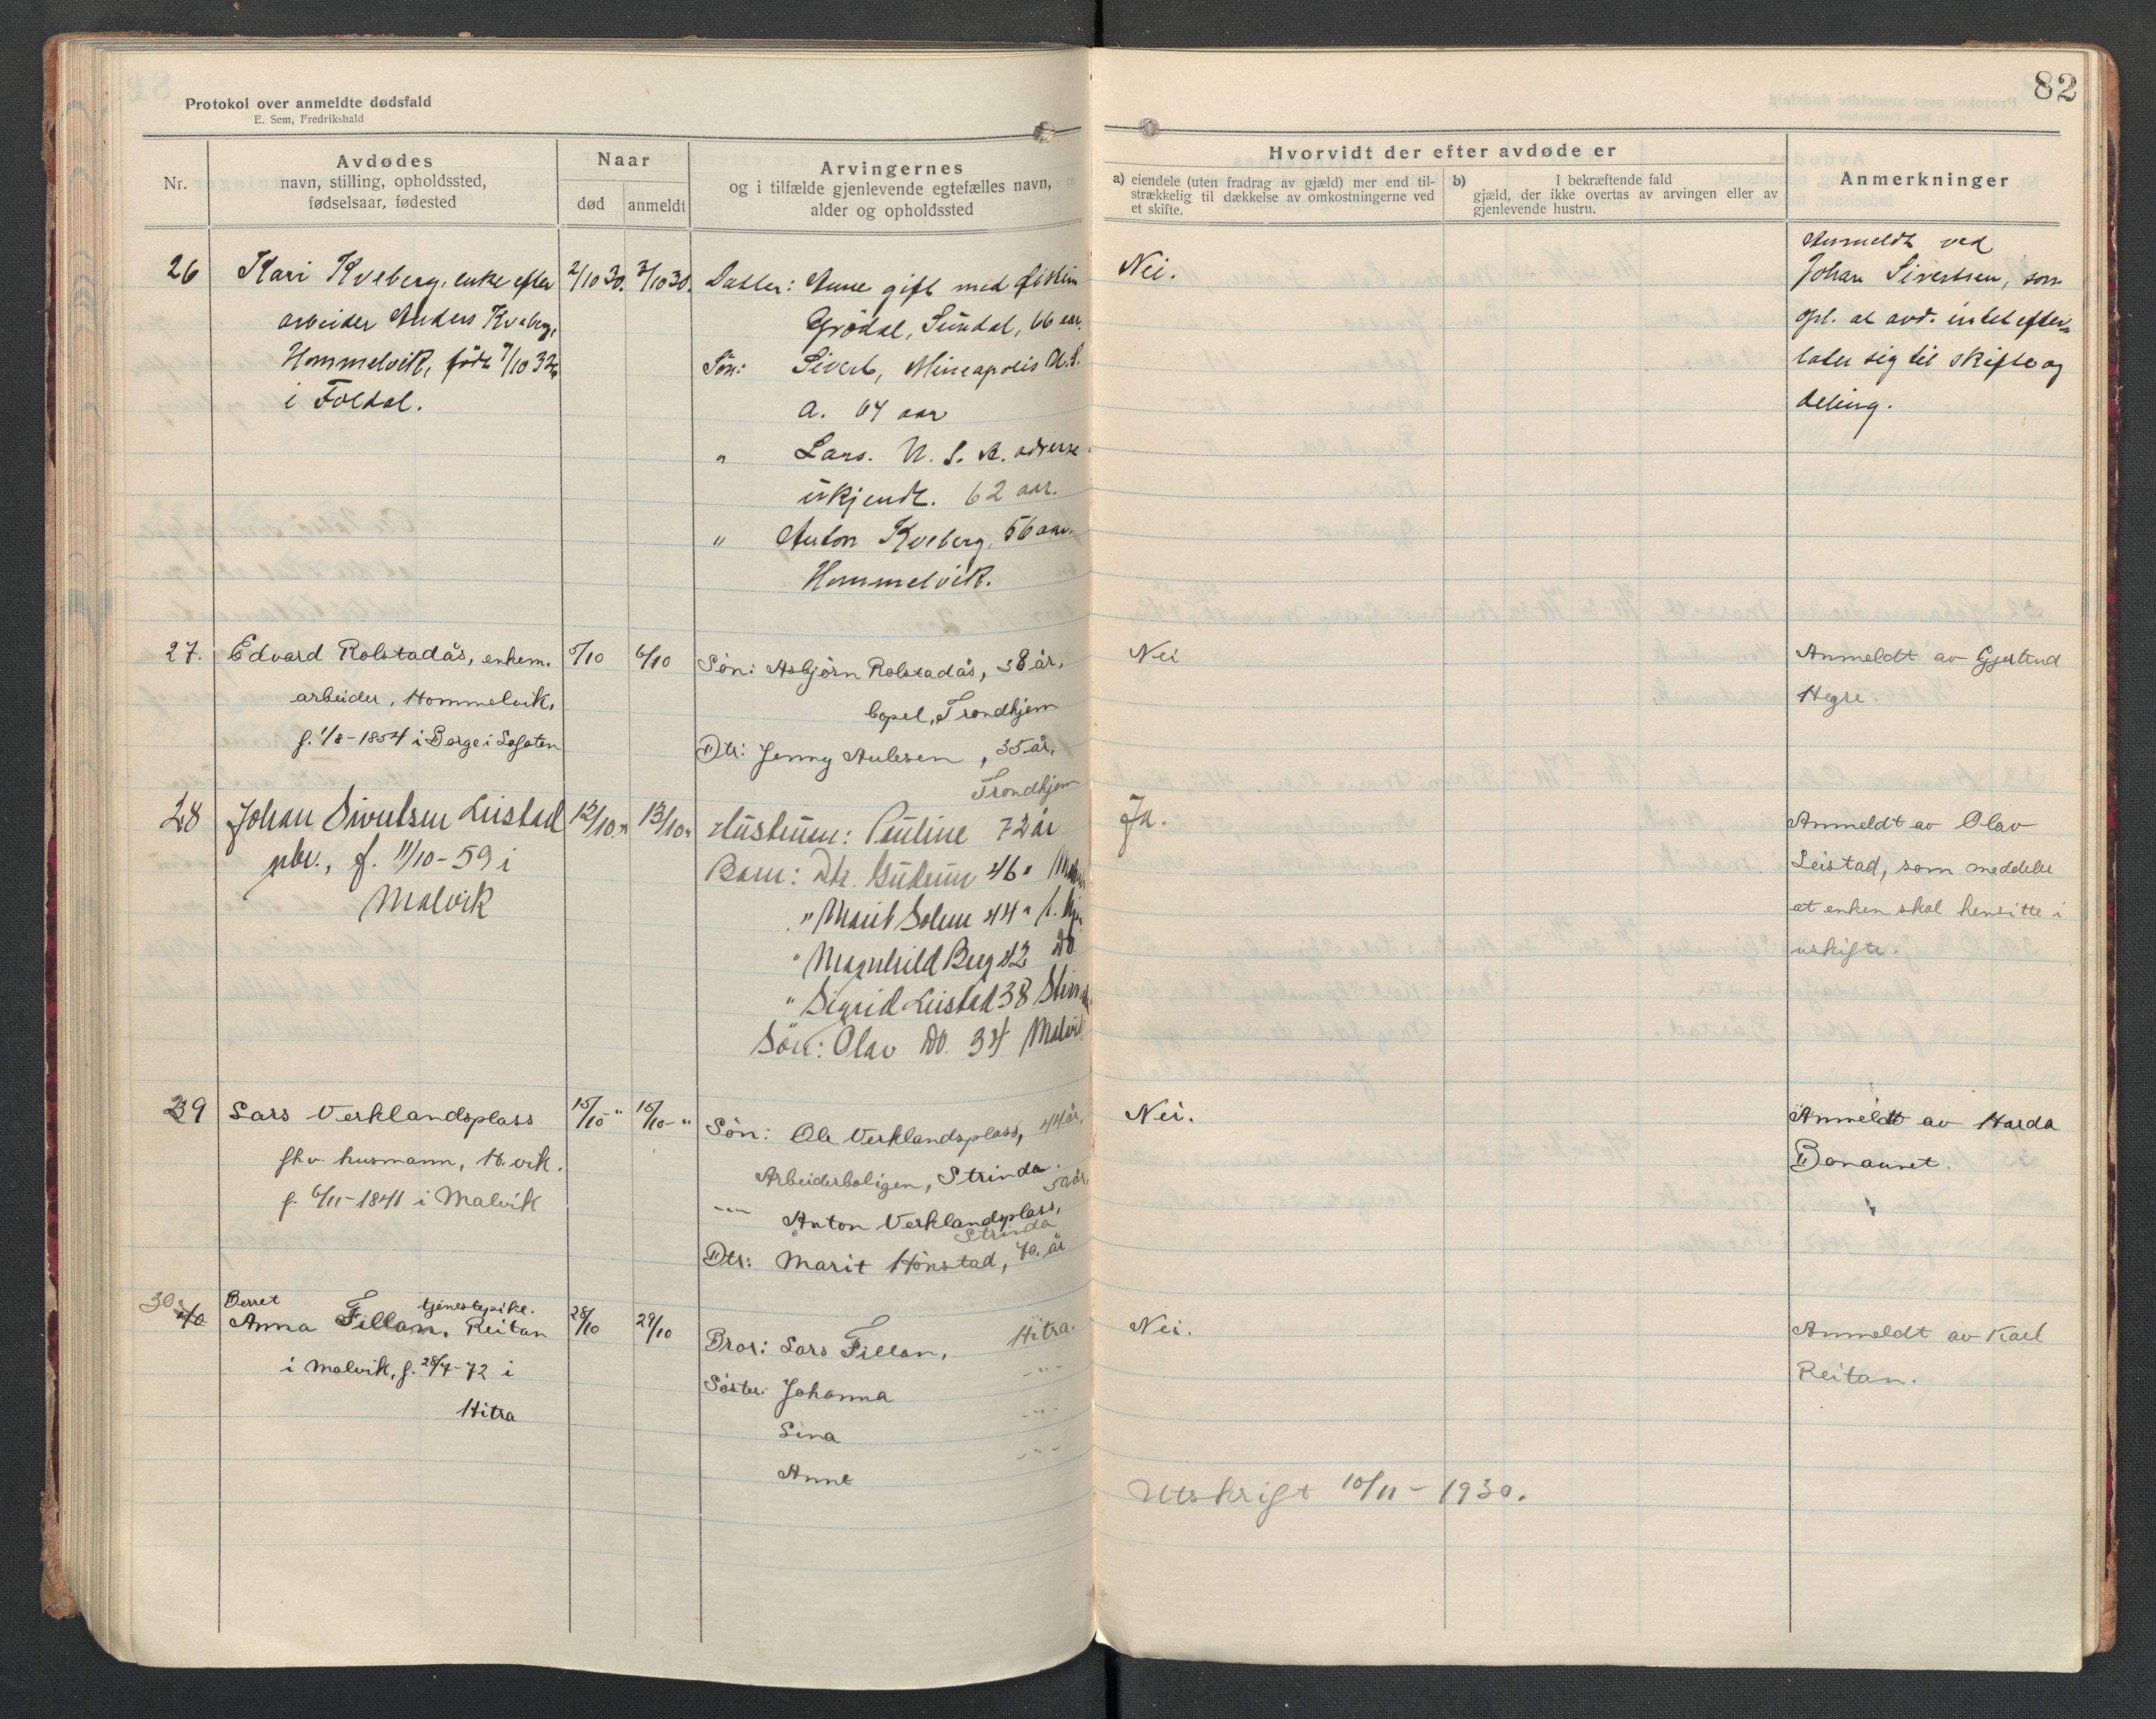 82
Protokol over anmeldte dødsfald
E. Sem, Fredrikshald
Nr.
Avdødes
navn, stilling, opholdssted,
fødselsaar, fødested
Naar
død
anmeldt
Arvingernes
og i tilfælde gjenlevende egtefælles navn,
alder og opholdssted
Hvorvidt der efter avdøde er
a) eiendele (uten fradrag av gjæld) mer end til-
strækkelig til dækkelse av omkostningerne ved
et skifte.
b) I bekræftende fald
gjæld, der ikke overtas av arvingen eller av
gjenlevende hustru.
Anmerkninger
26
Kari Kveberg, enke efter
arbeider Anders Kveberg,
Hommelvik, født 7/10 32
i Foldal.
2/10 30.
3/10 30.
Datter: Anne gift med
Grødal, Sundal, 66 aar.
Søn: Sivert, Mineapolis U.S.
A. 64 aar
" Lars. U. S. A. adresse
ukjendt. 62 aar.
" Anton Kveberg, 56 aar.
Hommelvik.
Nei.
Anmeldt ved
Johan Sivertsen, som
opl. at avd. intet efter-
later sig til skifte og
deling.
27.
Edvard Rolstadås, enkem.
arbeider, Hommelvik,
f. 1/8-1854 i Borge i Lofoten
5/10
6/10
Søn: Asbjørn Rolstadås, 38 år,
Trondhjem
Dtr: Jenny Aulesen, 35 år,
Trondhjem
Nei
Anmeldt av Gjertrud
Hegre.
28
Johan Sivertsen Leistad
gbr., f. 11/10-59 i
Malvik
12/10 "
13/10 "
Hustruen: Pauline 72 år
Barn: Dtr. Gudrun 46 "
" Marit Solem 44 "
" Magnhild Berg 42 do
" Sigrid Leistad 38
Søn: Olav do. 34 Malvik
Ja.
Anmeldt av Olav
Leistad, som meddeler
at enken skal hensitte i
uskifte.
29
Lars Verklandsplass
fhv. husmann, H.vik.
f. 6/11-1841 i Malvik
15/10-"
15/10-"
Søn: Ole Verklandsplass, 44 år,
Arbeiderboligen, Strinda.
-"- Anton Verklandsplass, 50 år,
Strinda
Dtr: Marit Hönstad, 40. år
Nei.
Anmeldt av Harda
Bonaunet.
30
Berret
Anna Fillan, tjenestepike. Reitan
i Malvik, f. 28/7-72 i
Hitra
28/10
29/10
Bror: Lars Fillan, Hitra.
Söster: Johanna -"-
Sina -"-
Anne -"-
Nei.
Anmeldt av Karl
Reitan.
Utskrift 10/11-1930.